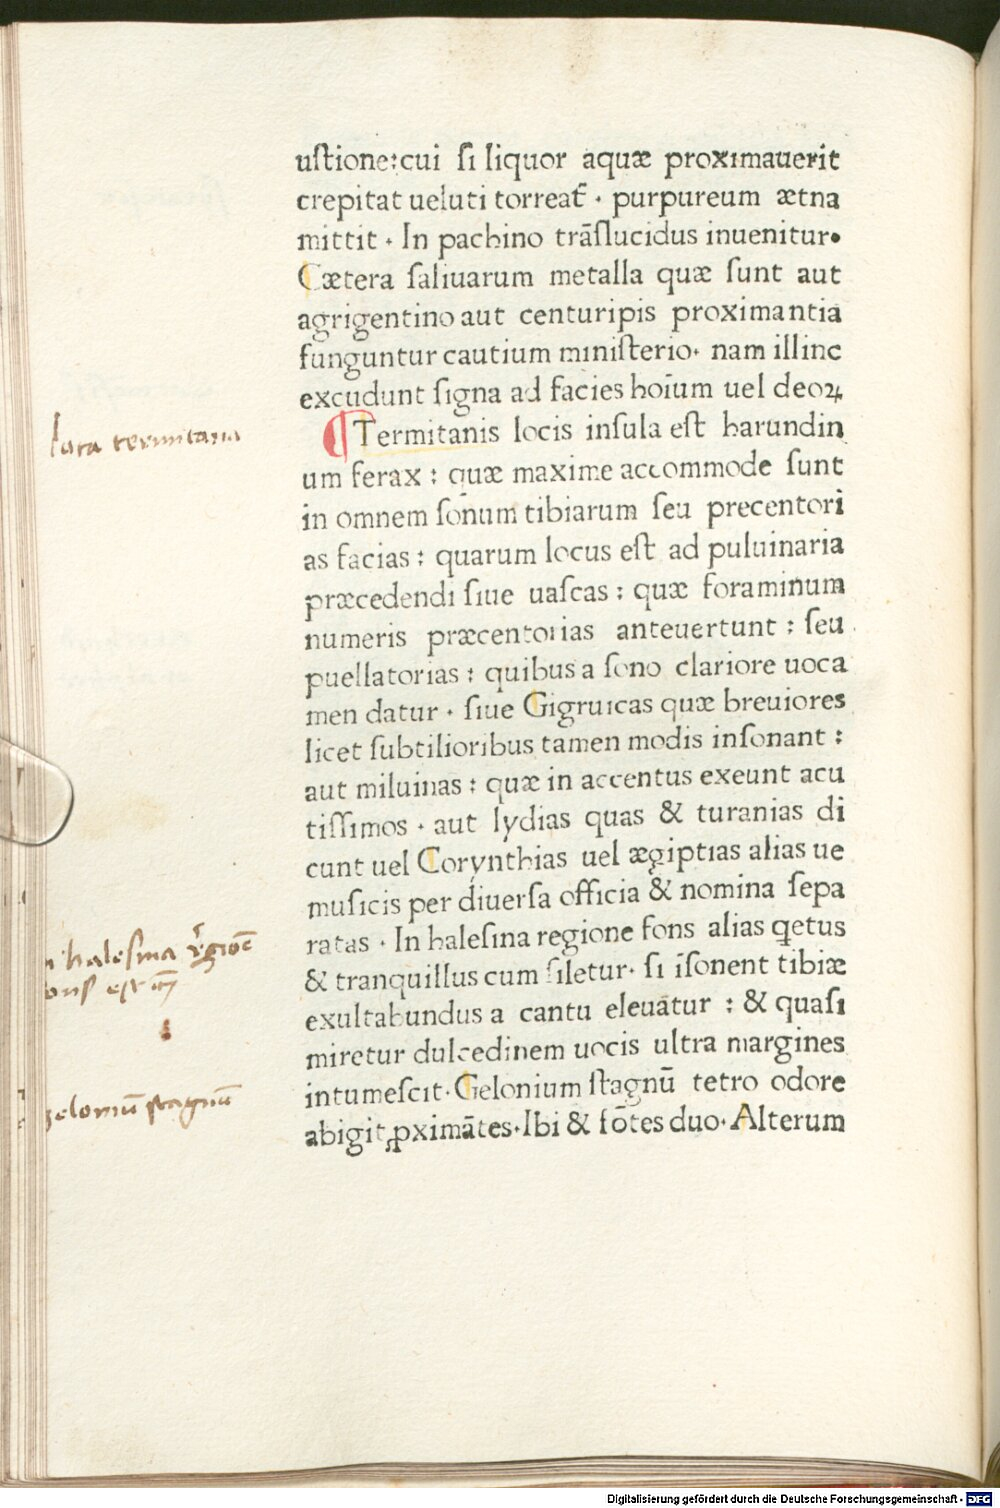 uſtione:cui ſi liquor aquæ proximauerit
crepitat ueluti torreat̃ · purpureum ætna
mittit · In pachino trãſlucidus inuenitur·
Cætera ſaliuarum metalla quæ ſunt aut
agrigentino aut centuripis proximantia
funguntur cautium miniſterio· nam illinc
excudunt ſigna ad facies hoĩum uel deoꝝ
Lora termitana
¶Termitanis locis inſula eſt harundin
um ferax : quæ maxime accommode ſunt
in omnem ſonum tibiarum ſeu precentori
as facias : quarum locus eſt ad puluinaria
præcedendi ſiue uaſcas : quæ foraminum
numeris præcentorias anteuertunt : ſeu
puellatorias : quibus a ſono clariore uoca
men datur · ſiue Gigruicas quæ breuiores
licet ſubtilioribus tamen modis inſonant :
aut miluinas : quæ in accentus exeunt acu
tiſſimos · aut lydias quas & turanias di
cunt uel Corynthias uel ægiptias alias ue
muſicis per diuerſa officia & nomina ſepa
ratas · In haleſina regione fons alias q̃etus
halesina
& tranquillus cum ſiletur· ſi ĩſonent tibiæ
exultabundus a cantu eleuãtur : & quaſi
miretur dulcedinem uocis ultra margines
intumeſcit· Gelonium ſtagnũ tetro odore
geloniũ stagnũ
abigit ꝓximãtes·Ibi & fõtes duo· Alterum
Digitalisierung gefördert durch die Deutsche Forschungsgemeinschaft - DFG